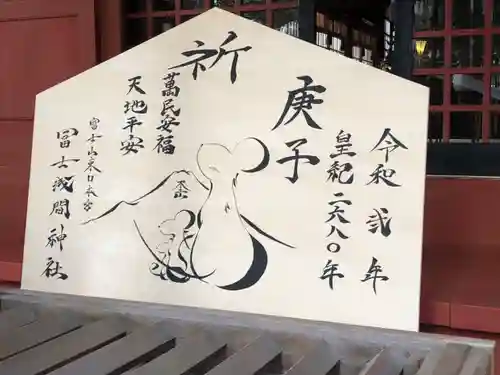 令和 弐 年
皇紀 二六八〇年
庚子
祈
萬民安福
天地平安
冨士山東口本宮
冨士浅間神社